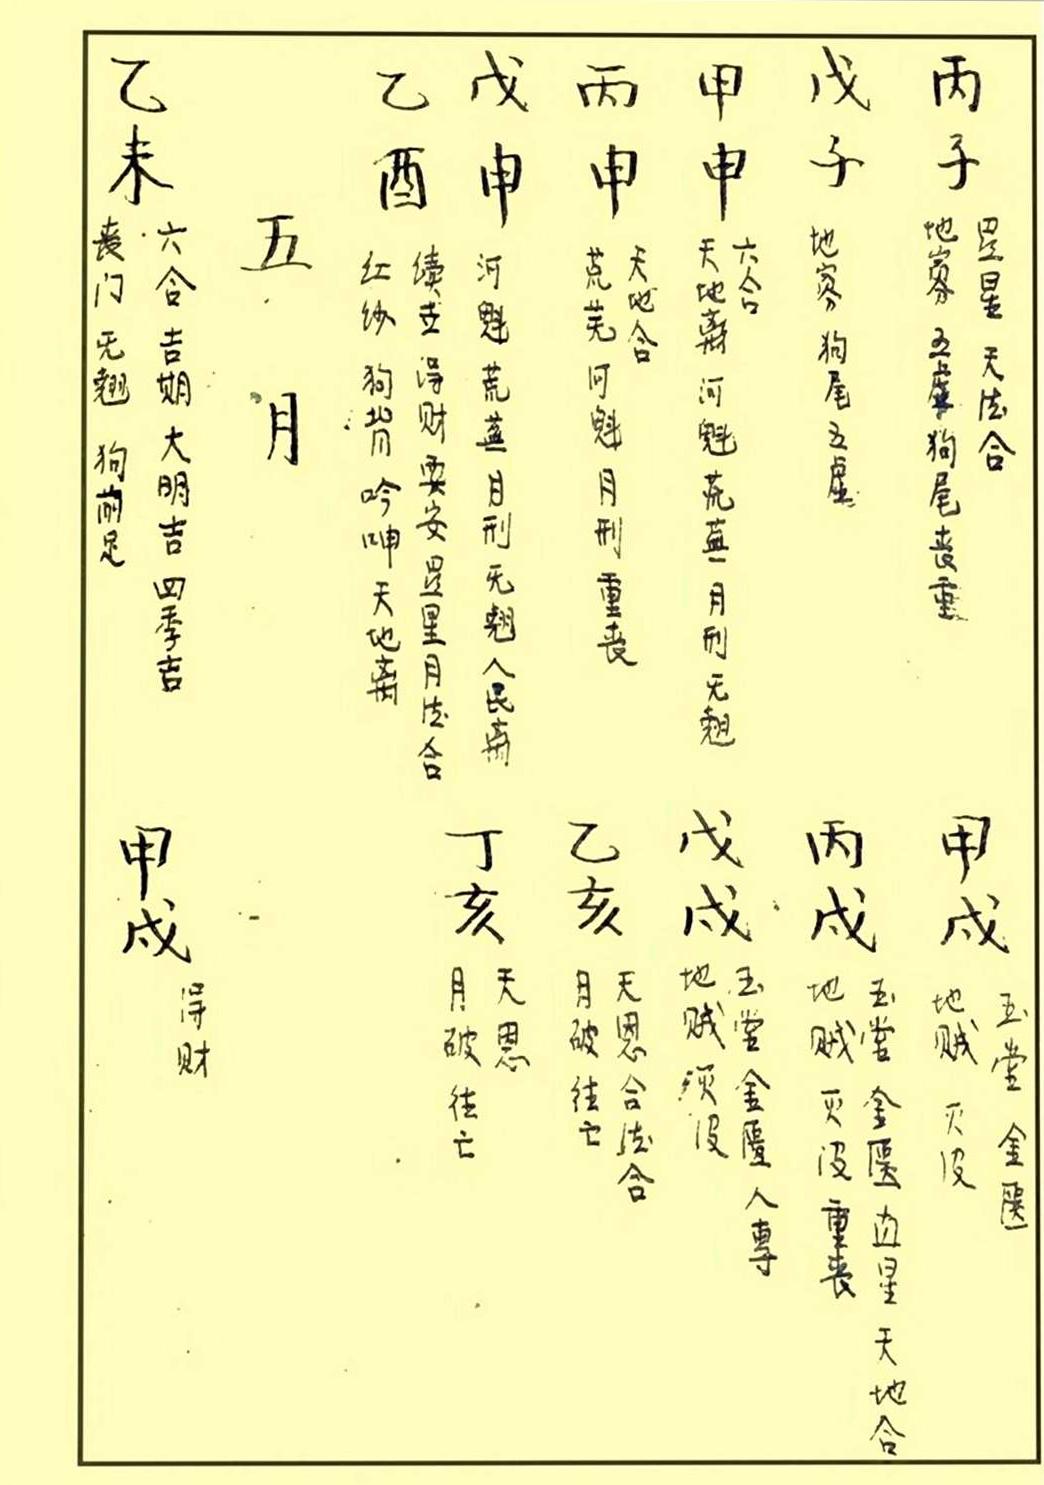 丙子
显星 天法合
地寡 五虚 狗尾 丧重
戊子
地寡 狗尾 五虚
甲申
六合
天地离 河魁 荒芜 月刑 无翘
丙申
天地合
荒芜 河魁 月刑 重丧
戊申
河魁 荒芜 月刑 无翘 人民离
乙酉
续世 得财 要安 显星 月法合
红纱 狗背 吟呻 天地离
甲戌
玉堂 金匮
地贼 灭没
丙戌
玉堂 金匮 直星 天地合
地贼 灭没 重丧
戊戌
玉堂 金匮 人専
地贼 灭没
乙亥
天恩 合法合
月破 往亡
丁亥
天恩
月破 往亡
五月
乙未
六合 吉期 大明吉 四季吉
丧门 无翘 狗前足
甲戌
得财